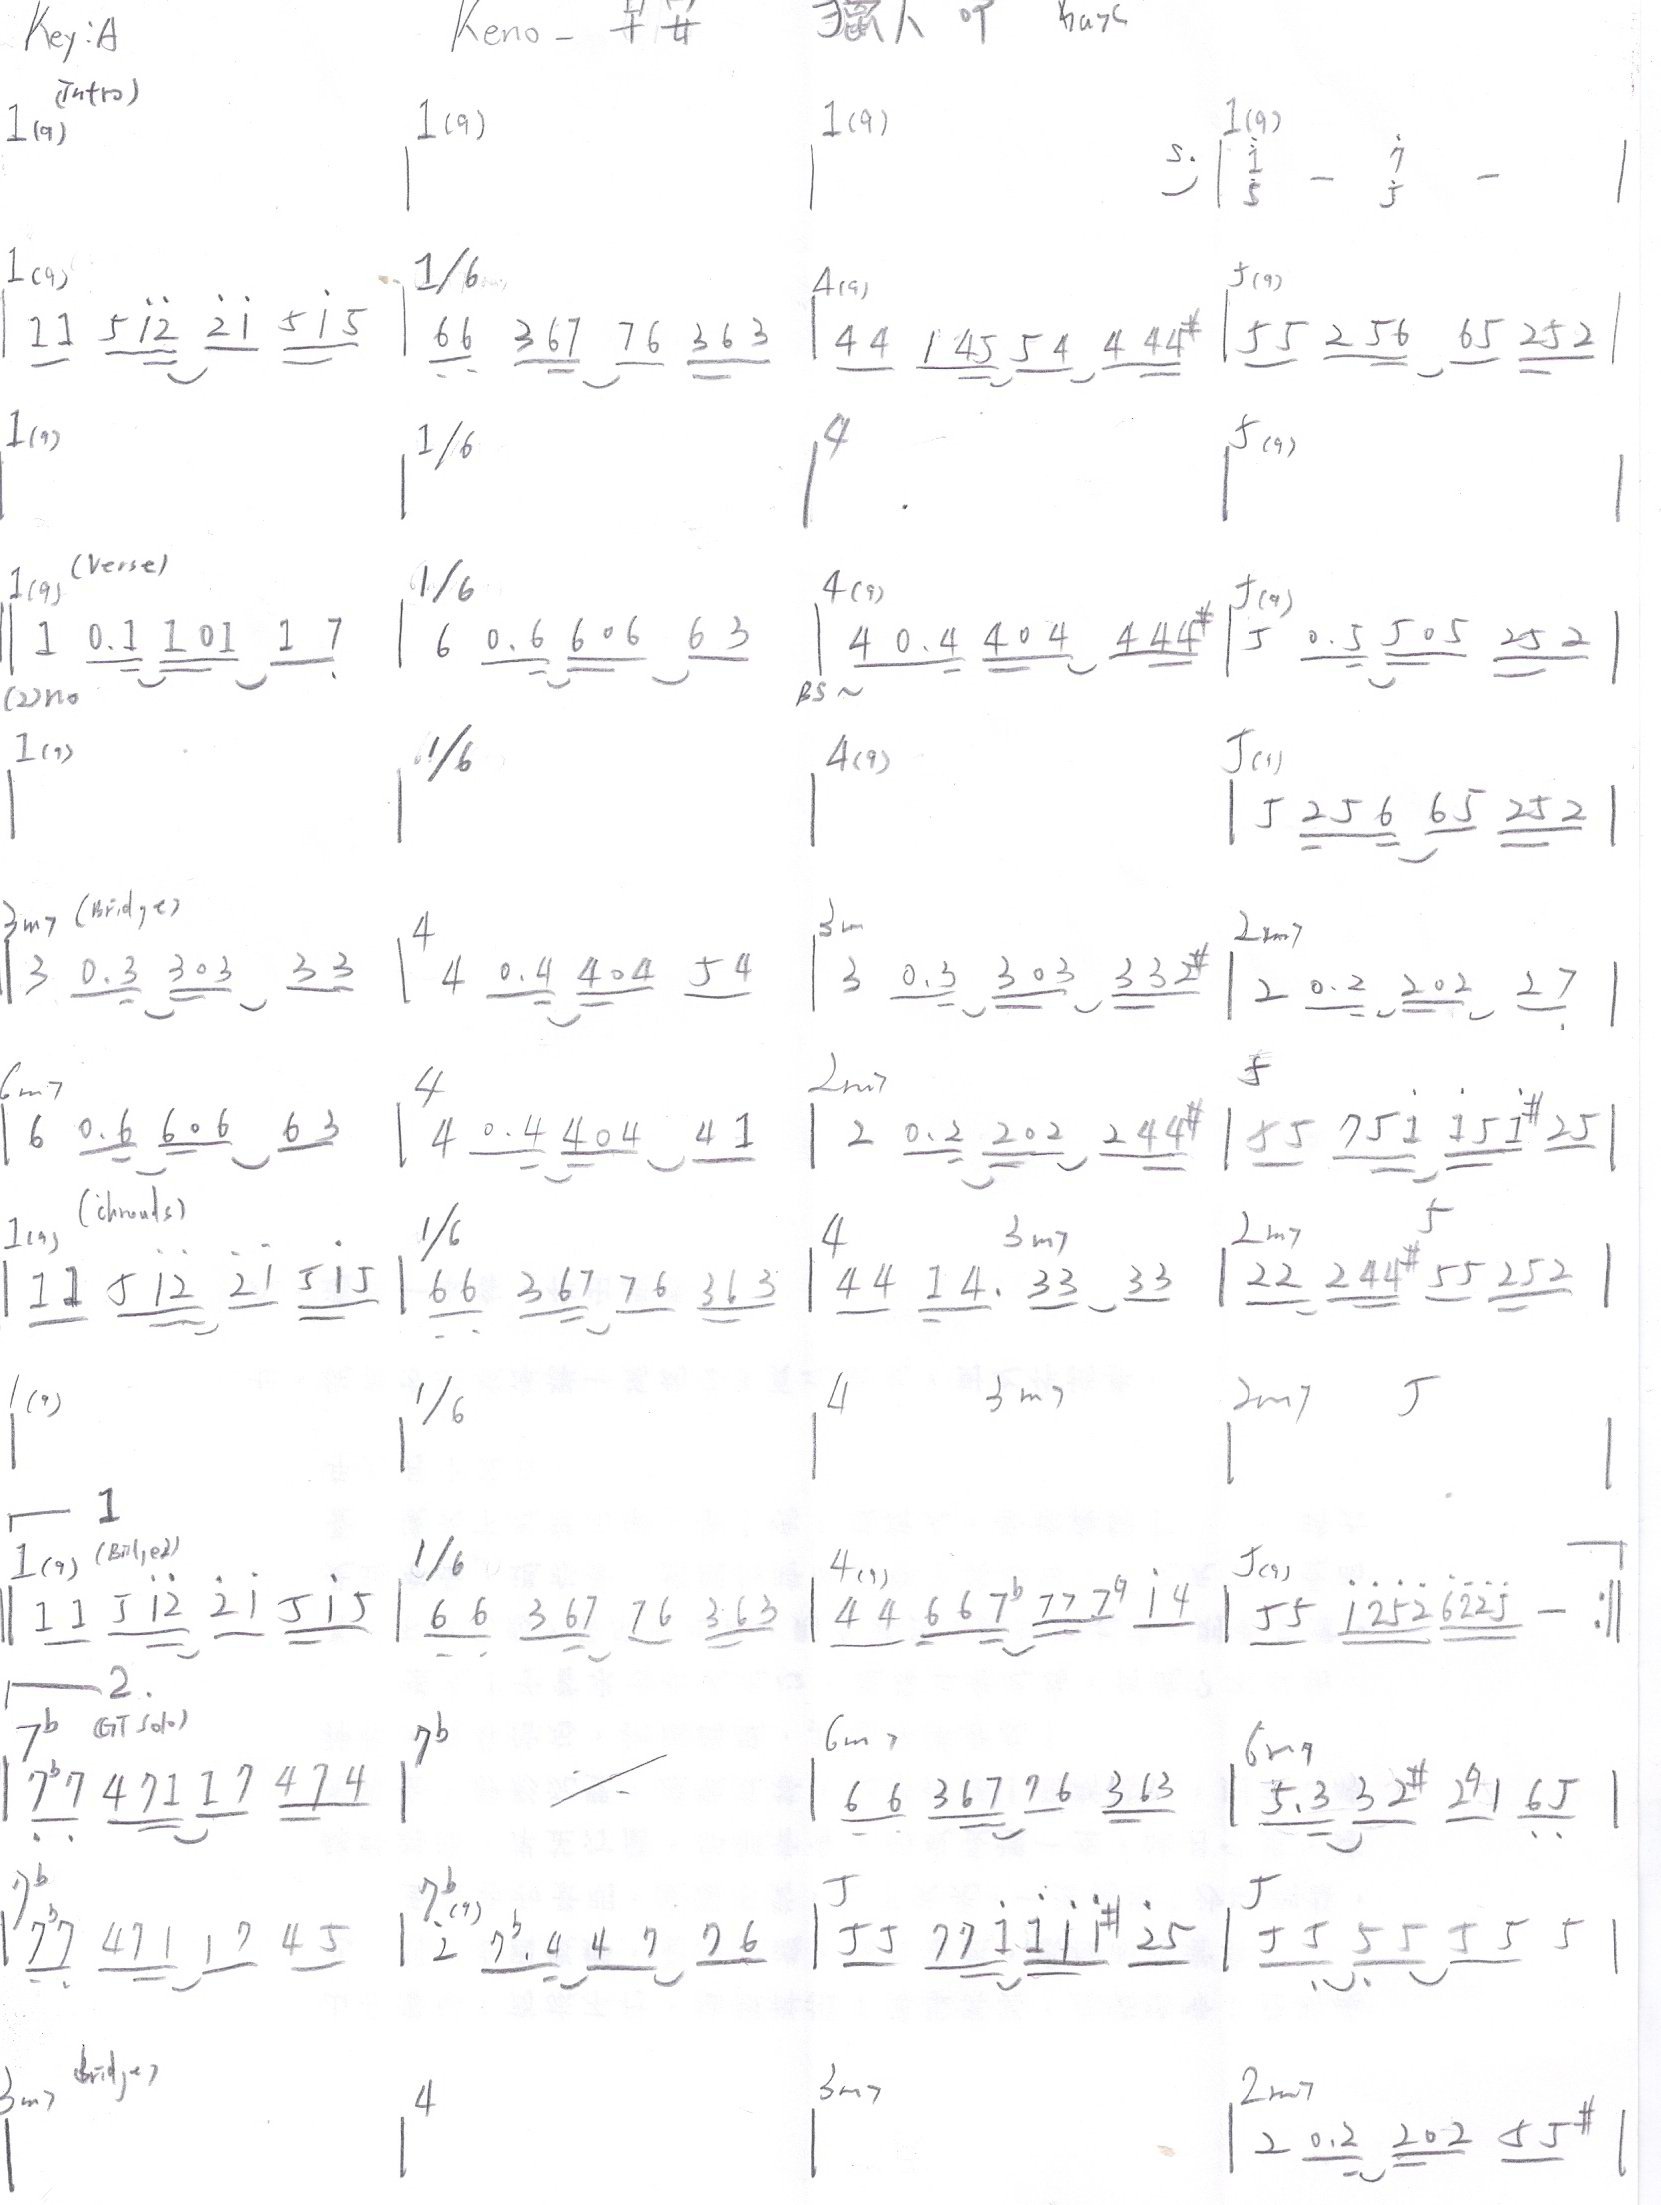 Key:A Keno- 早安 獵人 吖 bass
(Intro)
1(9) 1(9) 1(9) 1(9)
| | 5. | i/5 - 7/5 - |
1(9) 1/6 4(9) 5(9)
| 11 5i2 2i 5i5 | 66 367 76 363 | 44 145 54 444# | 55 256 65 252 |
1(9) 1/6 4 5(9)
| | | | |
1(9) (Verse) 1/6 4(9) 5(9)
|| 1 0.1 101 17 | 6 0.6 606 63 | 4 0.4 404 444# | 5 0.5 505 252 |
(2)no BS~
1(9) 1/6 4(9) 5(9)
| | | | 5 256 65 252 |
3m7 (Bridge) 4 3m 2m7
| 3 0.3 303 33 | 4 0.4 404 54 | 3 0.3 303 332# | 2 0.2 202 27 |
6m7 4 2m7 5
| 6 0.6 606 63 | 4 0.4 404 41 | 2 0.2 202 244# | 55 75i i5i# 25 |
1(9) 1/6 4 3m7 2m7 5
| 11 5i2 2i 5i5 | 66 367 76 363 | 44 14. 33 33 | 22 244# 55 252 |
1(9) 1/6 4 3m7 2m7 5
| | | | |
1
1(9) 1/6 4(9) 5(9)
|| 11 5i2 2i 5i5 | 66 367 76 363 | 44 667b 777 i4 | 55 i252 6225 - :||
2.
7b (GT solo) 7b 6m7 6m7
| 7b7 471 17 474 | ٪ | 66 367 76 363 | 5.3 32# 21 65 |
7b 7b(9) 5 5
| 7b7 471 17 45 | 2 7b.4 47 76 | 55 77i iii# 25 | 55 55 55 5 |
3m7 Bridge 4 3m7 2m7
| | | | 2 0.2 202 55# |